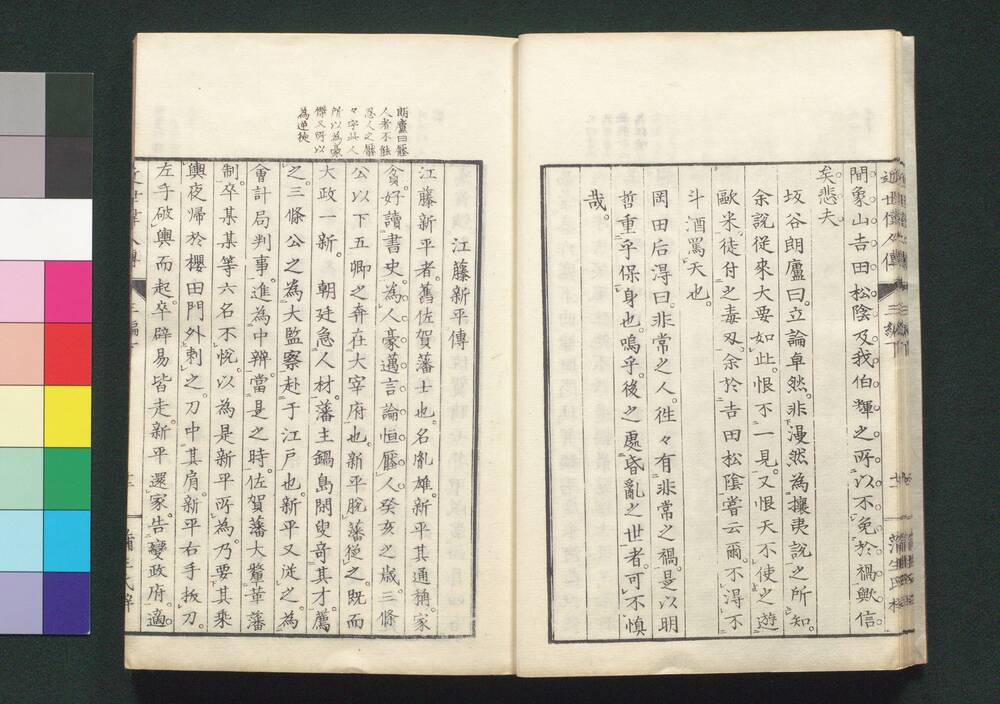 近世偉人傳 三編
聞象山吉田松陰及我伯輝之所以不免於禍歟信
矣悲夫
坂谷朗廬曰立論卓然非漫然為攘夷說之所知
余說從來大要如此恨不一見又恨天不使之遊
歐米徒付之毒刄余於吉田松陰嘗云爾不得不
斗酒罵天也
岡田后淂曰非常之人徃々有非常之禍是以明
哲重乎保身也嗚乎後之處昏亂之世者可不慎
哉
朗廬曰壓
人者不能
忍人之壓
々字此人
所以為豪
傑又所以
為逆徒
江藤新平傳
江藤新平者舊佐賀藩士也名胤雄新平其通稱家
貧好讀書史為人豪邁言論恒壓人癸亥之歲三條
公以下五卿之奔在大宰府也新平脫藩從之既而
大政一新朝廷急人材藩主鍋島閑叟竒其才薦
之三條公之為大監察赴于江戶也新平又從之為
會計局判事進為中辨當是之時佐賀藩大釐革藩
制卒某某等六名不悅以為是新平所為乃要其乘
輿夜歸於櫻田門外刺之刀中其肩新平右手扳刀
左手破輿而起卒辟易皆走新平還家告變政府適